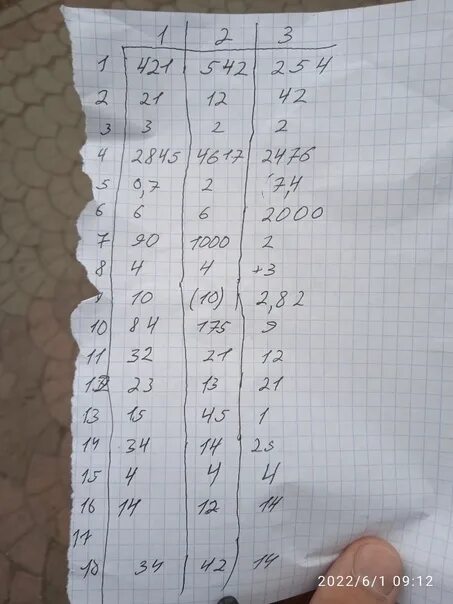 1 2 3
1 421 542 254
2 21 12 42
3 3 2 2
4 2845 4617 2476
5 0,7 2 7,4
6 6 6 2000
7 90 1000 2
8 4 4 +3
9 10 (10) 2,82
10 84 175 9
11 32 21 12
12 23 13 21
13 15 45 1
14 34 14 25
15 4 4 4
16 14 12 14
17
18 34 42 14
2022/6/1 09:12